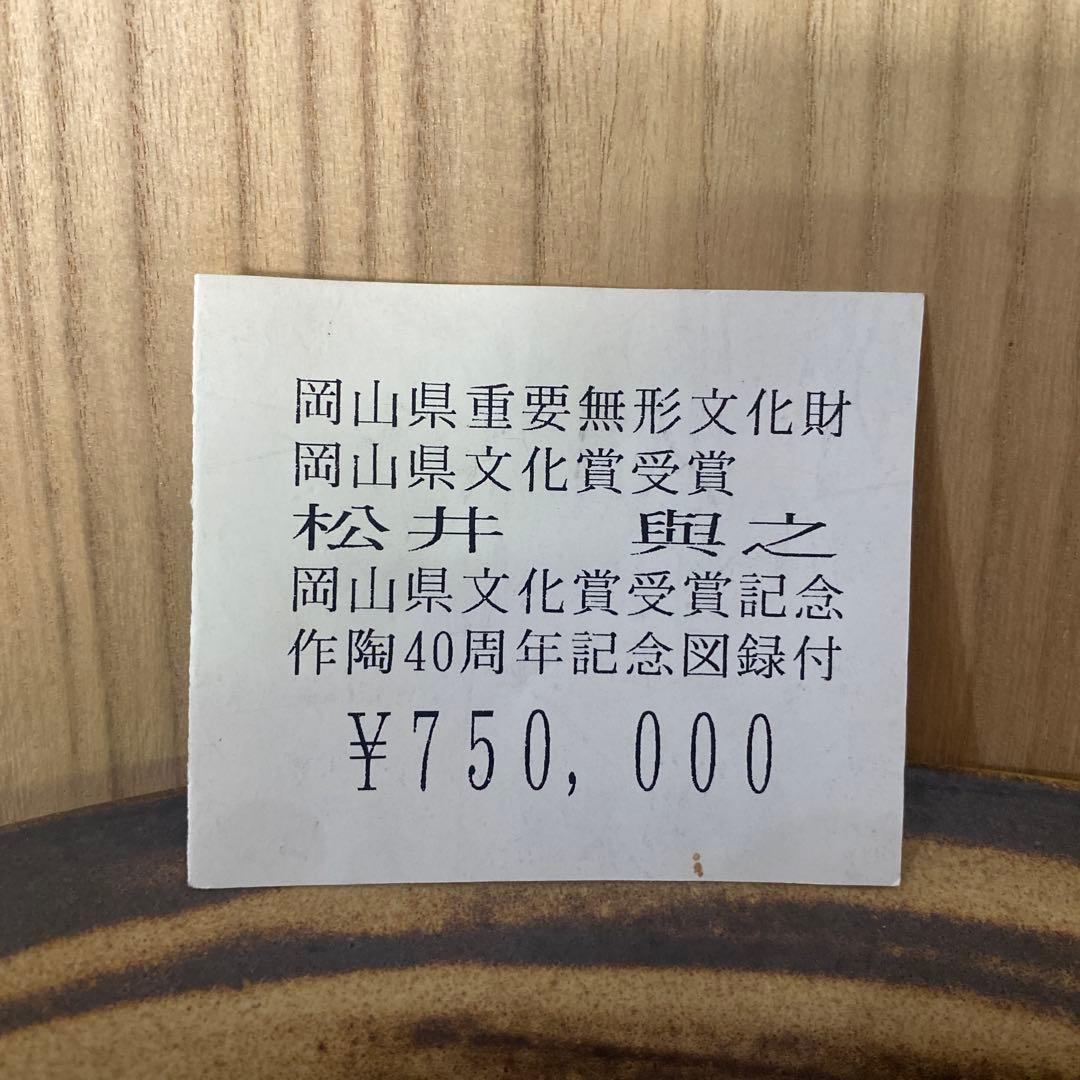 岡山県重要無形文化財
岡山県文化賞受賞
松井　與之
岡山県文化賞受賞記念
作陶40周年記念図録付
¥750,000